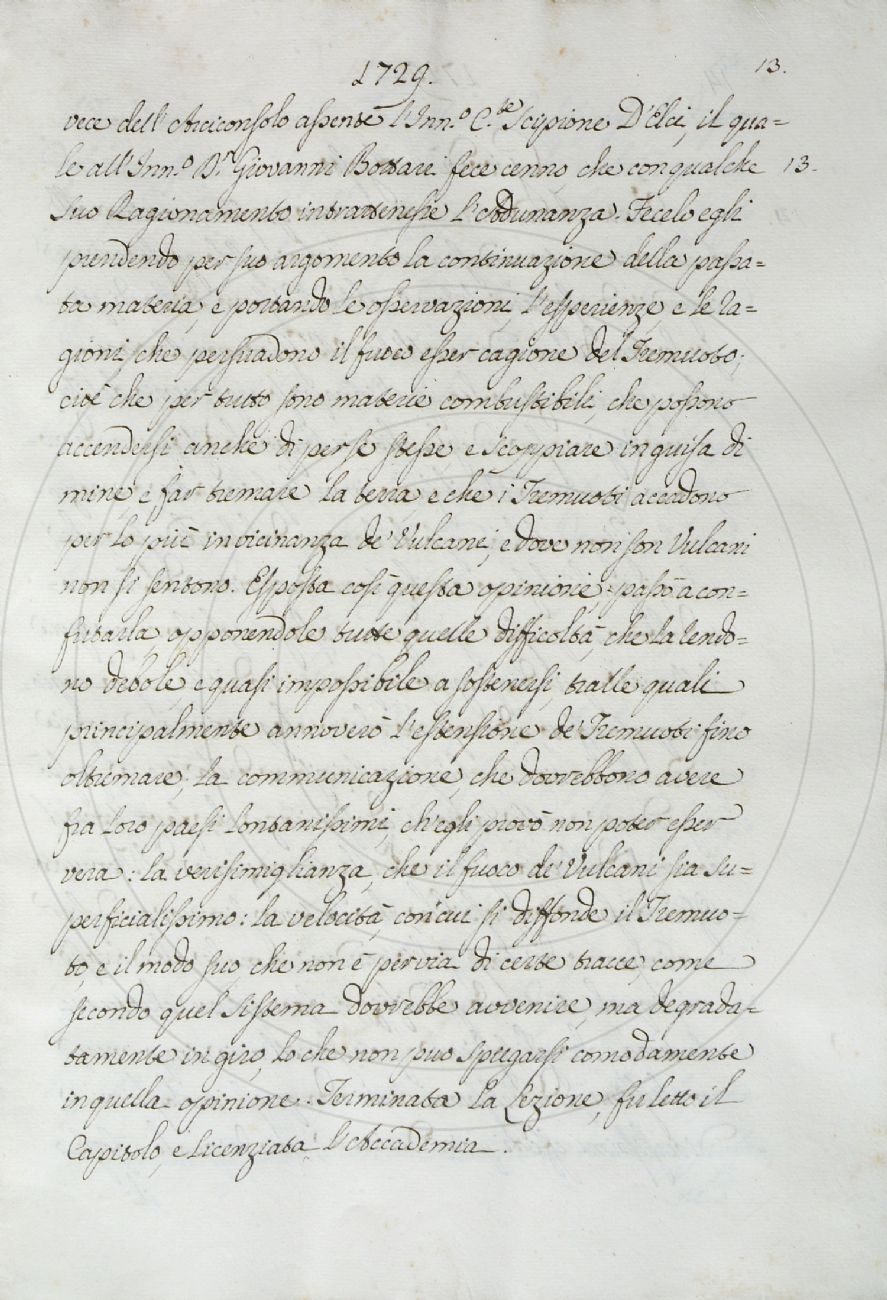 1729.
13.
vece dell'Arciconsolo assente l'Inn.º C.te Scipione D'Elci, il qua=
le all'Inn.º D.r Giovanni Bottari fece cenno, che con qualche
13.
suo Ragionamento intrattenesse l'Adunanza. Fecelo egli
prendendo per suo argomento la continuazione della passa=
ta materia, e portando le osservazioni, l'esperienze, e le ra=
gioni, che persuadono il fuoco esser cagione del Tremuoto;
cioè che per tutto sono materie combustibili, che possono
accendersi anche di per se stesse e scoppiare in guisa di
mine, e far tremare la terra e che i Tremuoti accadono
per lo più in vicinanza de' Vulcani, e dove non son Vulcani
non si sentono. Esposta così questa opinione, passò a con=
futarla, opponendole tutte quelle difficoltà, che la rendo=
no debole, e quasi impossibile a sostenersi, tralle quali
principalmente annoverò l'estensione de' Tremuoti fino
oltremare; la communicazione, che dovrebbono avere
fra loro paesi lontanissimi, ch'egli provò non poter esser
vera: la verisimiglianza, che il fuoco di Vulcani sia su=
perficialissimo: la velocità, con cui si diffonde il Tremuo=
to, e il modo suo, che non è per via di certe tracce, come
secondo quel sistema dovrebbe avvenire, ma degrada=
tamente in giro, lo che non può spiegarsi comodamente
in quella opinione. Terminata la Lezione, fu letto il
Capitolo, e licenziata l'Accademia.